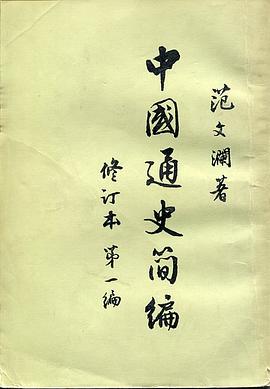 范文澜著
中國通史简编
修订本 第一编